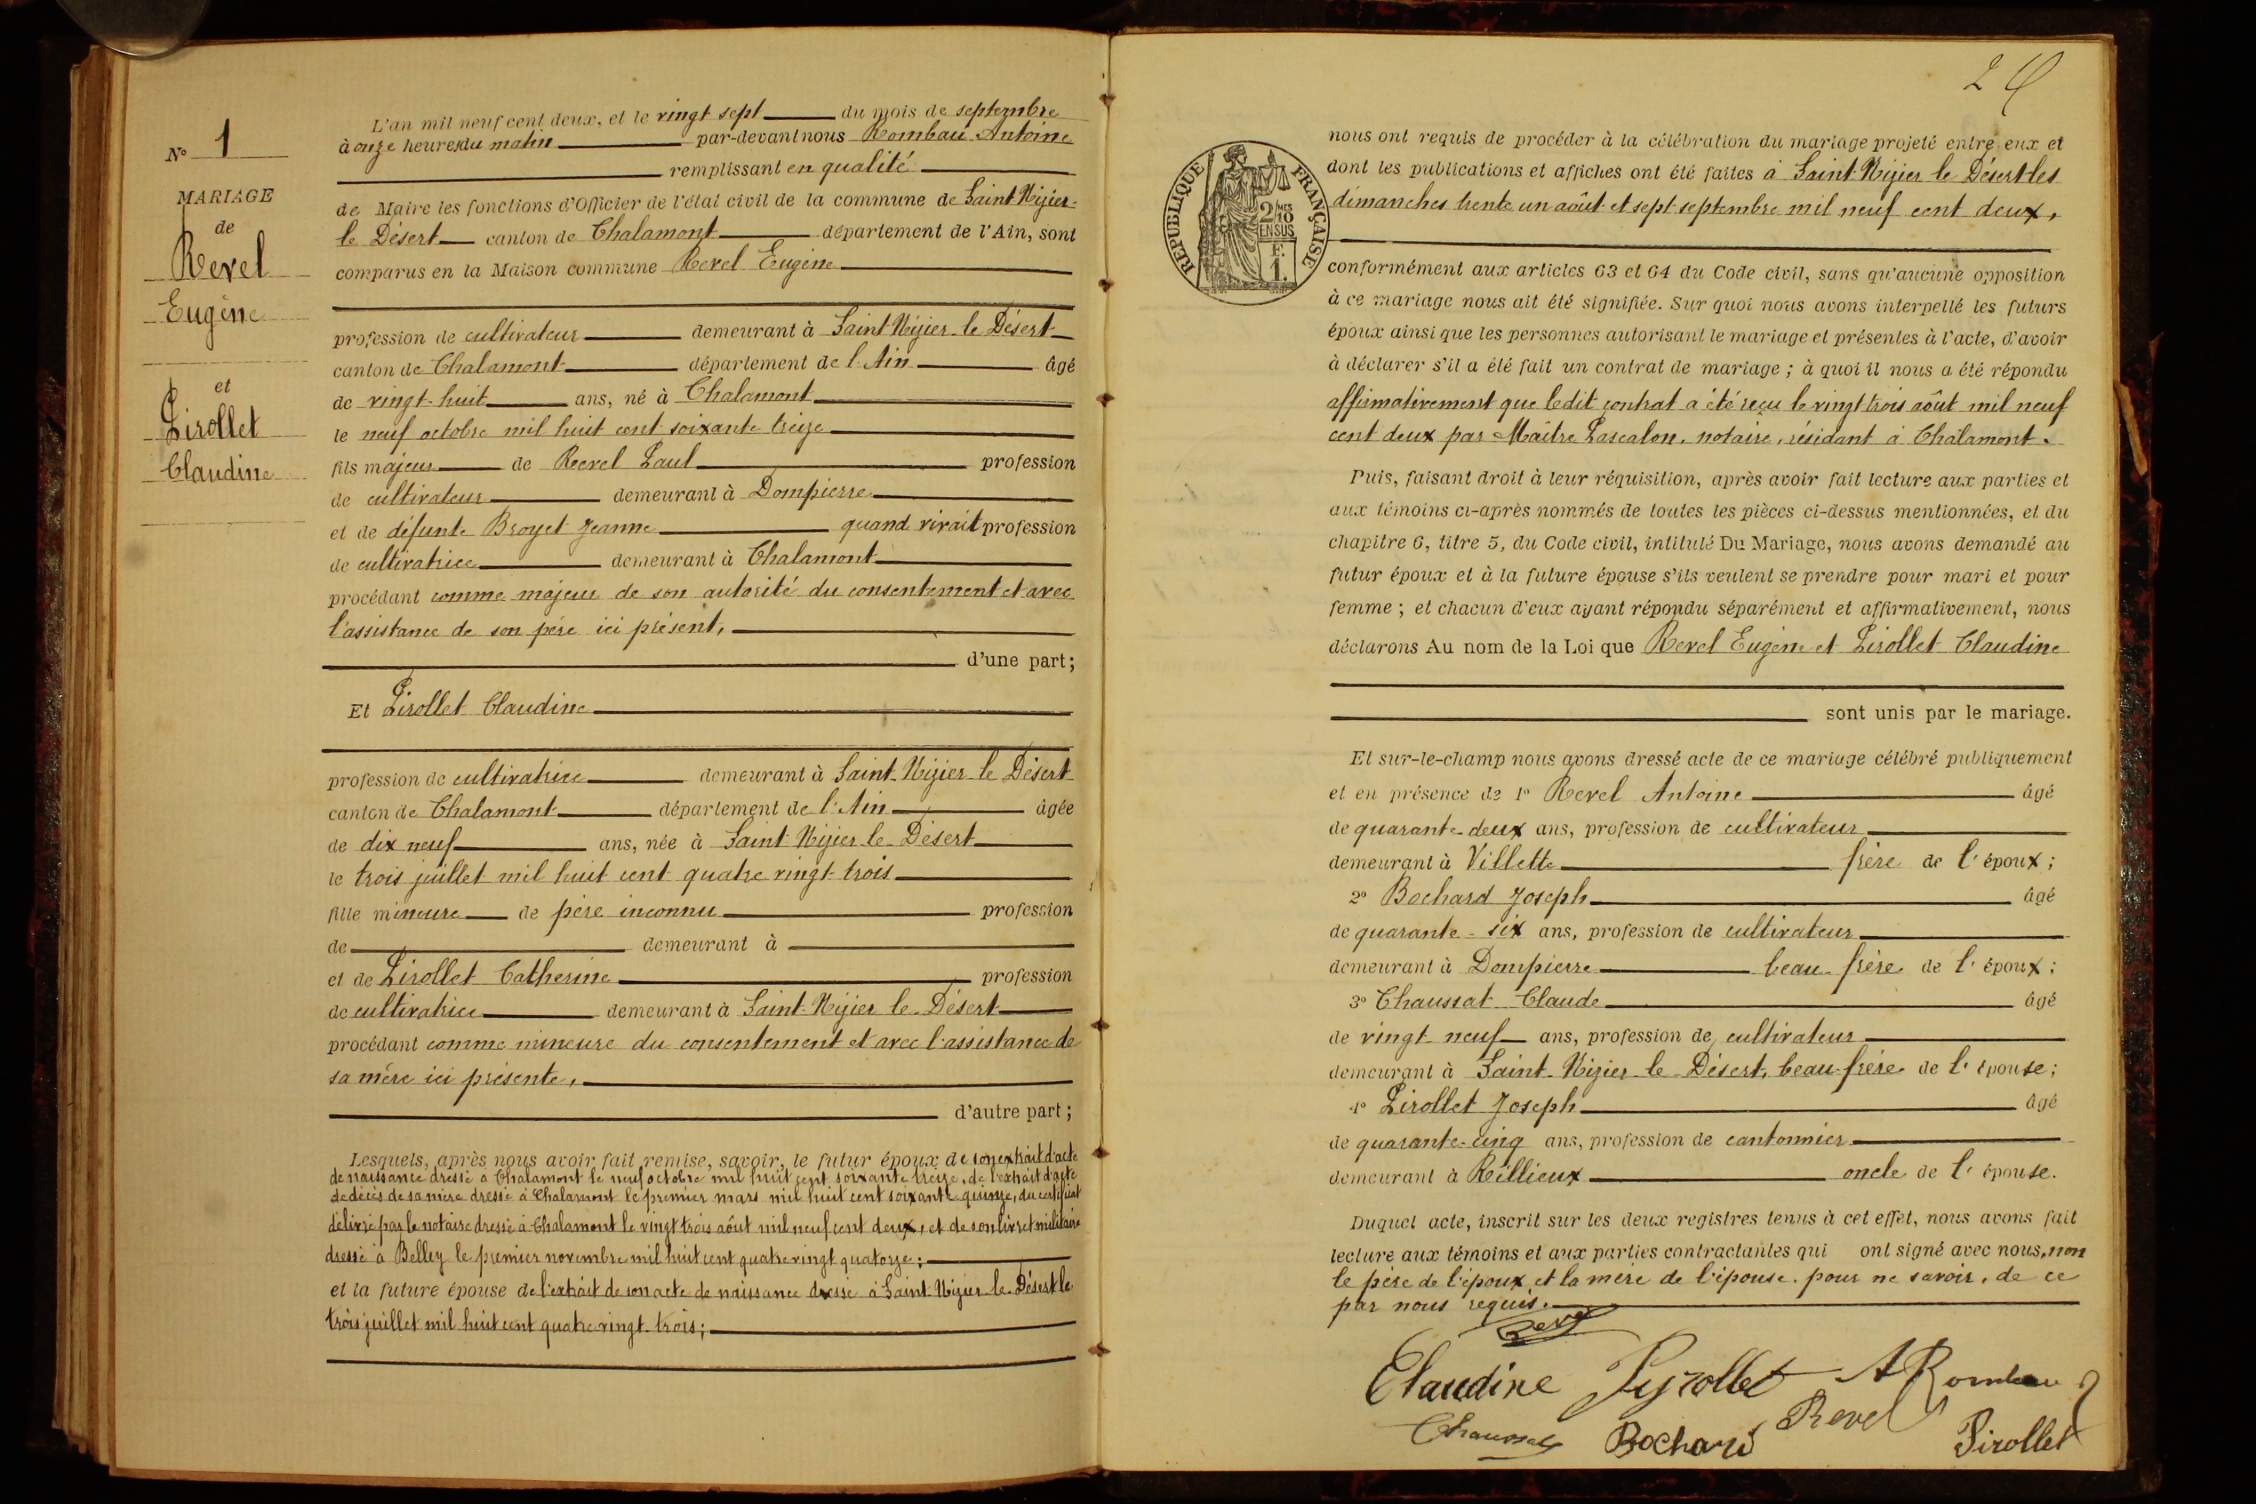 N° 1
MARIAGE
de
Revel
Eugène
et
Pirollet
Claudine
L'an mil neuf cent deux, et le vingt sept du mois de septembre
à onze heures du matin par-devant nous Rombau Antoine
remplissant en qualité
de Maire les fonctions d'Officier de l'état civil de la commune de Saint Nizier
le Désert canton de Chalamont département de l'Ain, sont
comparus en la Maison commune Revel Eugène
profession de cultivateur demeurant à Saint Nizier le Désert
canton de Chalamont département de l'Ain âgé
de vingt-huit ans, né à Chalamont
le neuf octobre mil huit cent soixante treize
fils majeur de Revel Paul profession
de cultivateur demeurant à Dompierre
et de défunte Broyet Jeanne quand vivait profession
de cultivatrice demeurant à Chalamont
procédant comme majeur de son autorité du consentement et avec
l'assistance de son père ici présent,
d'une part;
Et Pirollet Claudine
profession de cultivatrice demeurant à Saint Nizier le Désert
canton de Chalamont département de l'Ain âgée
de dix neuf ans, née à Saint Nizier le Désert
le trois juillet mil huit cent quatre vingt trois
fille mineure de père inconnu profession
de demeurant à
et de Pirollet Catherine profession
de cultivatrice demeurant à Saint Nizier le Désert
procédant comme mineure du consentement et avec l'assistance de
sa mère ici présente,
d'autre part;
Lesquels, après nous avoir fait remise, savoir, le futur époux de son extrait d'acte
de naissance dressé à Chalamont le neuf octobre mil huit cent soixante treize, de l'extrait d'acte
de décès de sa mère dressé à Chalamont le premier mars mil huit cent soixante quinze, du certificat
délivré par le notaire dressé à Chalamont le vingt trois août mil neuf cent deux, et de son livret militaire
dressé à Belley le premier novembre mil huit cent quatre vingt quatorze;
et la future épouse de l'extrait de son acte de naissance dressé à Saint Nizier le Désert le
trois juillet mil huit cent quatre vingt trois;
2
RÉPUBLIQUE FRANÇAISE
2/10
EN SUS
F.
1.
nous ont requis de procéder à la célébration du mariage projeté entre eux et
dont les publications et affiches ont été faites à Saint Nizier le Désert les
dimanches trente un août et sept septembre mil neuf cent deux,
conformément aux articles 63 et 64 du Code civil, sans qu'aucune opposition
à ce mariage nous ait été signifiée. Sur quoi nous avons interpellé les futurs
époux ainsi que les personnes autorisant le mariage et présentes à l'acte, d'avoir
à déclarer s'il a été fait un contrat de mariage; à quoi il nous a été répondu
affirmativement que ledit contrat a été reçu le vingt trois août mil neuf
cent deux par Maître Lascalon, notaire, résidant à Châlamont.
Puis, faisant droit à leur réquisition, après avoir fait lecture aux parties et
aux témoins ci-après nommés de toutes les pièces ci-dessus mentionnées, et du
chapitre 6, titre 5, du Code civil, intitulé Du Mariage, nous avons demandé au
futur époux et à la future épouse s'ils veulent se prendre pour mari et pour
femme; et chacun d'eux ayant répondu séparément et affirmativement, nous
déclarons Au nom de la Loi que Revel Eugène et Pirollet Claudine
sont unis par le mariage.
Et sur-le-champ nous avons dressé acte de ce mariage célébré publiquement
et en présence de 1° Revel Antoine âgé
de quarante-deux ans, profession de cultivateur
demeurant à Villette frère de l'époux;
2° Bochard Joseph âgé
de quarante-six ans, profession de cultivateur
demeurant à Dompierre beau-frère de l'époux;
3° Chaussat Claude âgé
de vingt neuf ans, profession de cultivateur
demeurant à Saint Nizier le Désert, beau-frère de l'épouse;
4° Pirollet Joseph âgé
de quarante-cinq ans, profession de cantonnier
demeurant à Reillieux oncle de l'épouse.
Duquel acte, inscrit sur les deux registres tenus à cet effet, nous avons fait
lecture aux témoins et aux parties contractantes qui ont signé avec nous, non
le père de l'époux et la mère de l'épouse, pour ne savoir, de ce
par nous requis.
Revel
Claudine Pyrollet A Rombau
Chaussat Bochard Revel Pirollet